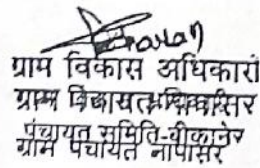 ग्राम विकास अधिकारी
ग्राम
पंचायत समिति-बीकानेर
ग्राम पंचायत नापासर